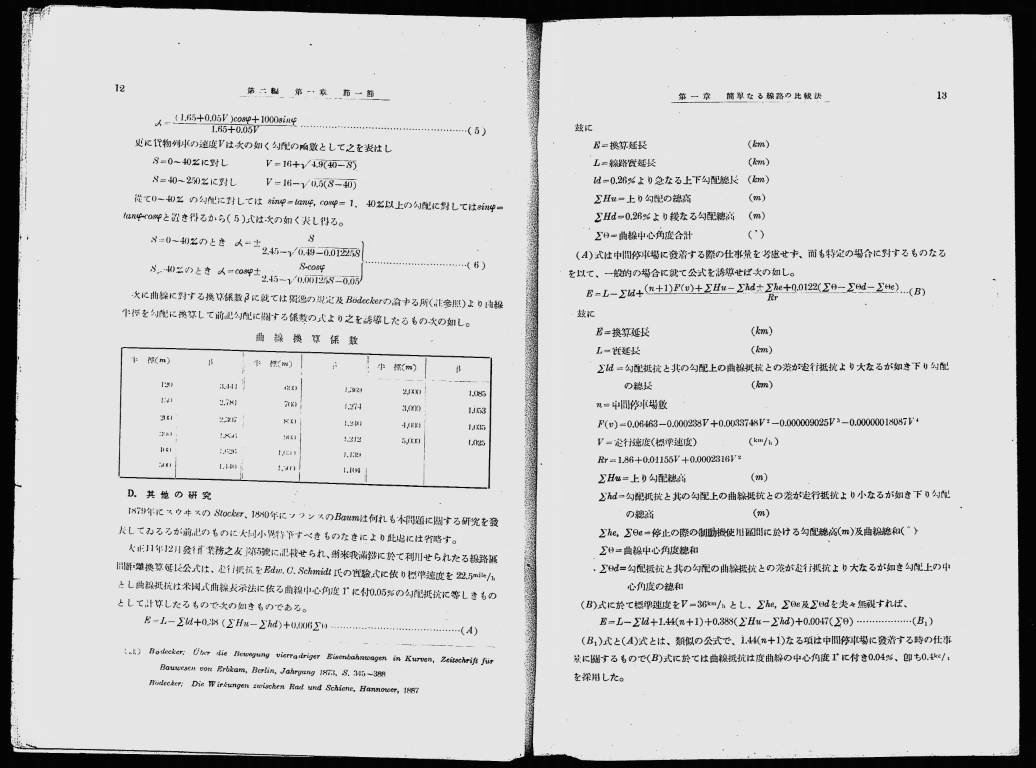 12
第二編 第一章 第一節
𝛼=((1.65+0.05V)cosφ+1000sinφ)/(1.65+0.05V) ……(5)
更に貨物列車の速度Vは次の如く勾配の函數として之を表はし
S=0~40‰に對し V=16+√4.9(40-S)
S=40~250‰に對し V=16-√0.5(S-40)
從て0~40‰ の勾配に對しては sinφ=tanφ, cosφ=1、 40‰以上の勾配に對してはsinφ=
tanφcosφと置き得るから(5)式は次の如く表し得る。
S=0~40‰のとき 𝛼=± S/(2.45-√0.49-0.01225S)
S>40‰のとき 𝛼=cosφ± S·cosφ/(2.45-√0.00125S-0.05) ……(6)
次に曲線に對する換算係數βに就ては獨逸の規定及Bodeckerの論ずる所(註參照)より曲線
半徑を勾配に換算して前記勾配に關する係數の式より之を誘導したるもの次の如し。
曲線換算係數
半徑(m) β 半徑(m) β 半徑(m) β
120 3.441 600 1,369 2,000 1.085
2,781 700 1,274 3,000 1.053
200 2,307 800 1,240 4,000 1.035
1,212 5,000 1.025
1,139
500 1,104
D. 其他の研究
1879年にスウヰスの Stocker、1880年にフランスのBaumは何れも本問題に關する研究を發
表してゐるが前記のものに大同小異特筆すべきものなきにより此處には省略す。
大正11年12月發行業務之友 第5號に記載せられ、爾來我滿鐵に於て利用せられたる線路區
間距離換算延長公式は、走行抵抗をEdw. C. Schmidt 氏の實驗式に依り標準速度を 22.5mile/h
とし曲線抵抗は米國式曲線表示法に依る曲線中心角度1°に付0.05‰の勾配抵抗に等しきもの
として計算したるもので次の如きものである。
E=L-Σld+0.38(ΣHu-Σhd)+0.006ΣΘ ……(A)
(註) Bodecker; Über die Bewegung vierradriger Eisenbahnwagen in Kurven, Zeitschrift für
Bauwesen von Erbkam, Berlin, Jahrgang 1873, S. 345~388
Bodecker; Die Wirkungen zwischen Rad und Schiene, Hannower, 1887
第一章 簡單なる線路の比較法
13
玆に
E=換算延長 (km)
L=線路實延長 (km)
ld=0.26%より急なる上下勾配總長 (km)
ΣHu=上り勾配の總高 (m)
ΣHd=0.26%より緩なる勾配總高 (m)
ΣΘ=曲線中心角度合計 (°)
(A)式は中間停車場に發着する際の仕事量を考慮せず、而も特定の場合に對するものなる
を以て、一般的の場合に就て公式を誘導せば次の如し。
E=L-Σld+((n+1)F(v)+ΣHu-Σhd±Σhe+0.0122(ΣΘ-ΣΘd-ΣΘe))/Rr …(B)
玆に
E=換算延長 (km)
L=實延長 (km)
Σld=勾配抵抗と其の勾配上の曲線抵抗との差が走行抵抗より大なるが如き下り勾配
の總長 (km)
n=中間停車場數
F(v)=0.06463-0.000238V+0.0033748V²-0.000009025V³-0.00000018087V⁴
V=走行速度(標準速度) (km/h)
Rr=1.86+0.01155V+0.0002316V²
ΣHu=上り勾配總高 (m)
Σhd=勾配抵抗と其の勾配上の曲線抵抗との差が走行抵抗より小なるが如き下り勾配
の總高 (m)
Σhe, ΣΘe=停止の際の制動機使用區間に於ける勾配總高(m)及曲線總和(°)
ΣΘ=曲線中心角度總和
ΣΘd=勾配抵抗と其の勾配の曲線抵抗との差が走行抵抗より大なるが如き勾配上の中
心角度の總和
(B)式に於て標準速度をV=36km/h とし、Σhe, ΣΘe及ΣΘdを夫々無視すれば、
E=L-Σld+1.44(n+1)+0.388(ΣHu-Σhd)+0.0047(ΣΘ) ……(B₁)
(B₁)式と(A)式とは、類似の公式で、1.44(n+1)なる項は中間停車場に發着する時の仕事
量に關するもので(B)式に於ては曲線抵抗は度曲線の中心角度1°に付き0.04‰、卽ち0.4kg/t
を採用した。